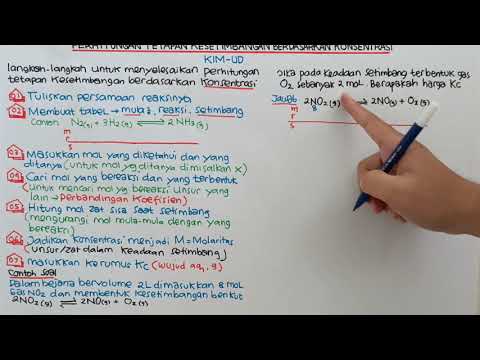 PERHITUNGAN TETAPAN KESETIMBANGAN BERDASARKAN KONSENTRASI
KIM-UD
langkah-langkah untuk menyelesaikan perhitungan
tetapan kesetimbangan berdasarkan konsentrasi
01 Tuliskan persamaan reaksinya
02 Membuat tabel → mula2, reaksi, setimbang
Contoh: N2(g) + 3H2(g) ⇌ 2 NH3(g)
m
r
s
03 Masukkan mol yang diketahui dan yang
ditanya (untuk mol yg ditanya dimisalkan x)
04 Cari mol yg bereaksi dan yg terbentuk
(untuk mencari mol yg bereaksi unsur yang
lain → Perbandingan Koefisien)
05 Hitung mol zat sisa saat setimbang
(mengurangi mol mula-mula dengan yang
bereaksi)
06 Jadikan konsentrasi menjadi M = Molaritas
(unsur/zat dalam keadaan setimbang)
07 masukkan kerumus Kc (wujud aq, g)
Contoh soal
Dalam bejana bervolume 2L dimasukkan 8 mol
gas NO2 dan membentuk kesetimbangan berikut
2NO2(g) ⇌ 2NO(g) + O2(g)
Jika pada keadaan setimbang terbentuk gas
O2 sebanyak 2 mol. Berapakah harga Kc
Jawab: 2NO2(g) 2NO(g) + O2(g)
m 8
r
s